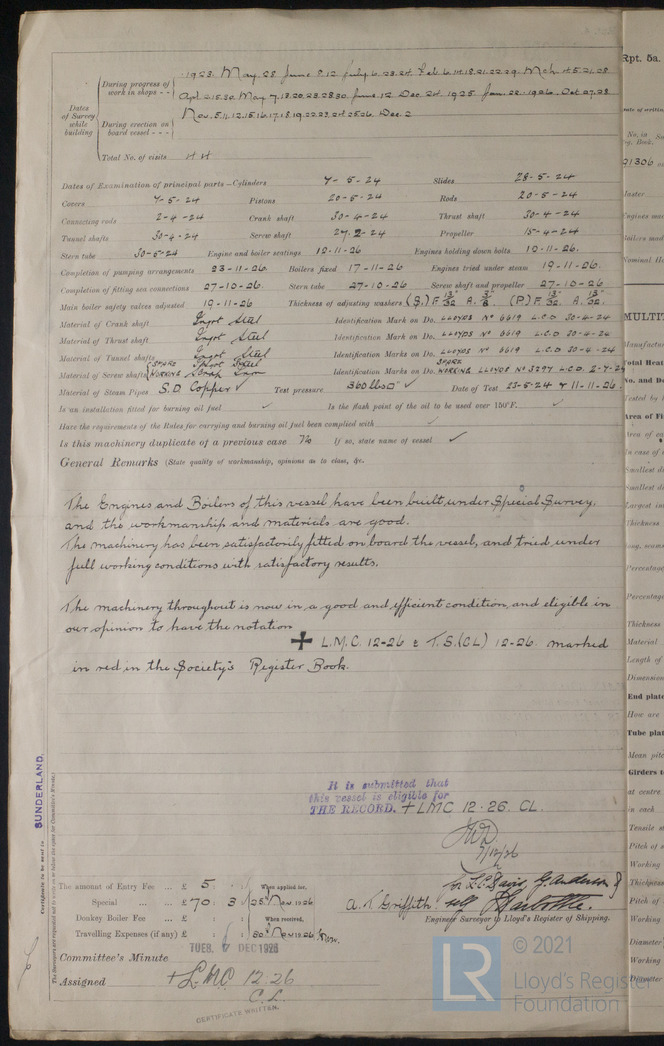 Dates of Survey while building
During progress of work in shops - -
1923. May. 28 June 8.12 July 6.23.24. Feb 6.14.18.21.22.29. Mch 4.5.21.28
Apl 2.15.30. May 7.13.20.23.28.30 June 12 Dec. 24. 1925 Jan. 28. 1926. Oct 27.28
During erection on board vessel - - -
Nov. 5.11.12.15.16.17.18.19.22.23.24.25.26. Dec. 2
Total No. of visits 44
Dates of Examination of principal parts—Cylinders 7-5-24 Slides 28-5-24
Covers 7-5-24 Pistons 20-5-24 Rods 20-5-24
Connecting rods 2-4-24 Crank shaft 30-4-24 Thrust shaft 30-4-24
Tunnel shafts 30-4-24 Screw shaft 27.2-24 Propeller 15-4-24
Stern tube 30-5-24 Engine and boiler seatings 19-11-26 Engines holding down bolts 19-11-26.
Completion of pumping arrangements 23-11-26 Boilers fixed 17-11-26 Engines tried under steam 19-11-26.
Completion of fitting sea connections 27-10-26. Stern tube 27-10-26 Screw shaft and propeller 27-10-26
Main boiler safety valves adjusted 19-11-26 Thickness of adjusting washers (S.) F 13/32 A. 3/8 (P.) F. 13/32 A. 13/32.
Material of Crank shaft Ingot Steel Identification Mark on Do. LLOYDS No 6619 L.C.D 30-4-24
Material of Thrust shaft Ingot Steel Identification Mark on Do. LLOYDS No 6619 L.C.D 30-4-24
Material of Tunnel shafts Ingot Steel Identification Marks on Do. LLOYDS No 6619 L.C.D 30-4-24
Material of Screw shafts SPARE Ingot Steel WORKING Scrap Iron Identification Marks on Do. SPARE WORKING LLOYDS No 3297 L.C.D. 2-7-24
Material of Steam Pipes S.D Copper ✓ Test pressure 360 lbs □" ✓ Date of Test 23-5-24 & 11-11-26.
Is an installation fitted for burning oil fuel ✓ Is the flash point of the oil to be used over 150°F. ✓
Have the requirements of the Rules for carrying and burning oil fuel been complied with ✓
Is this machinery duplicate of a previous case No If so, state name of vessel ✓
General Remarks (State quality of workmanship, opinions as to class, &c.
The Engines and Boilers of this vessel have been built under Special Survey,
and the workmanship and materials are good.
The machinery has been satisfactorily fitted on board the vessel, and tried under
full working conditions with satisfactory results.
The machinery throughout is now in a good and efficient condition and eligible in
our opinion to have the notation
✠ L.M.C. 12-26 & T.S.(CL) 12-26. marked
in red in the Society's Register Book.
It is submitted that
this vessel is eligible for
THE RECORD. + LMC 12.26. CL.
7/12/26
Certificate to be sent to SUNDERLAND.
The amount of Entry Fee ... £ 5 : : When applied for,
Special ... £ 70 : 3 : 25 Nov 1926
Donkey Boiler Fee ... £ : : When received,
Travelling Expenses (if any) £ : : 30 Nov 1926
for L.C. Davis, G. Anderson
A. T. Griffith self
Engineer Surveyor to Lloyd's Register of Shipping.
Committee's Minute TUES. 7 DEC 1926
Assigned + LMC 12.26
C.L.
CERTIFICATE WRITTEN.
LR © 2021
Lloyd's Register
Foundation
Rpt. 5a.
No. in
91306
MULTI